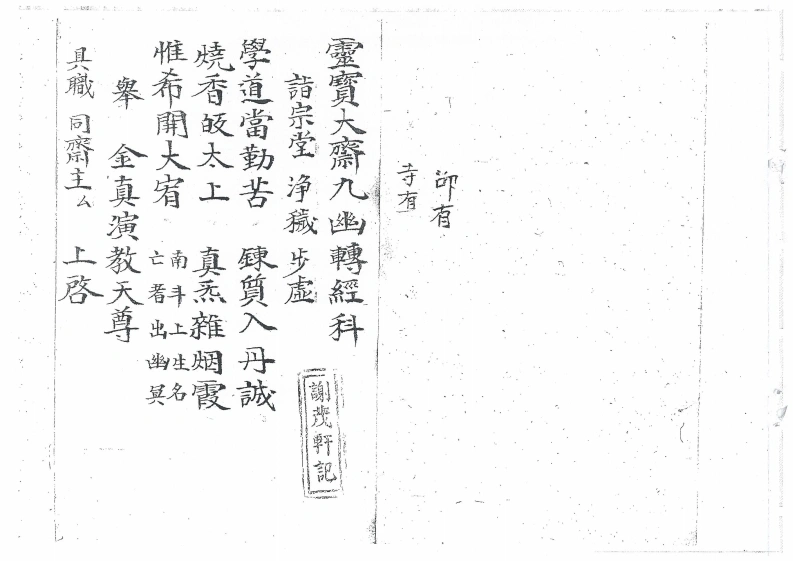 卭有
寺有
靈寶大齋九幽轉經科
詣宗堂 淨穢 步虛
謝茂軒記
學道當勤苦 鍊質入丹誠
燒香皈太上 真炁雜烟霞
惟希開大宥 南斗上生名 亡者出幽冥
舉 金真演教天尊
具職 同齋主厶 上啓